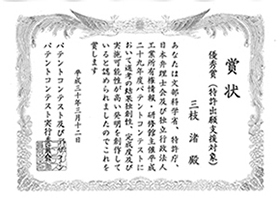 賞状
優秀賞(特許出願支援対象)
三枝 渚 殿
あなたは文部科学省、特許庁、
日本弁理士会及び独立行政法人
工業所有権情報・研修館主催平成
二十九年度パテントコンテストに
おいて選考の結果独創性、完成度及び
実施可能性が高い発明を創作して
いると認められましたのでこれを
賞します
平成三十年三月十二日
パテントコンテスト及びデザイン
パテントコンテスト実行委員会